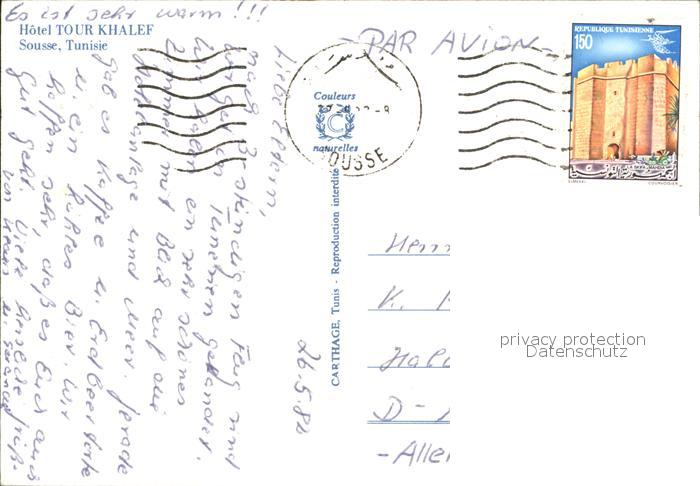 Es ist sehr warm!!!
Hôtel TOUR KHALEF
Sousse, Tunisie
26.5.82
Liebe Eltern,
nach 2 stündigen Flug sind
wir gut in Tunesien gelandet.
Wir haben en sehr schönes
Zimmer mit Blick auf die
Hotelanlage und Meer. Gerade
gab es Kaffee u. Erdbeertorte
u. ein kühles Bier. Wir
hoffen sehr, daß es Euch auch
gut geht. Viele Grüße
von Klaus u.
Couleurs
C
naturelles
CARTHAGE, Tunis - Reproduction interdite
- PAR AVION -
SOUSSE
REPUBLIQUE TUNISIENNE
150
Herrn
K.
D-
- Alle
privacy protection
Datenschutz